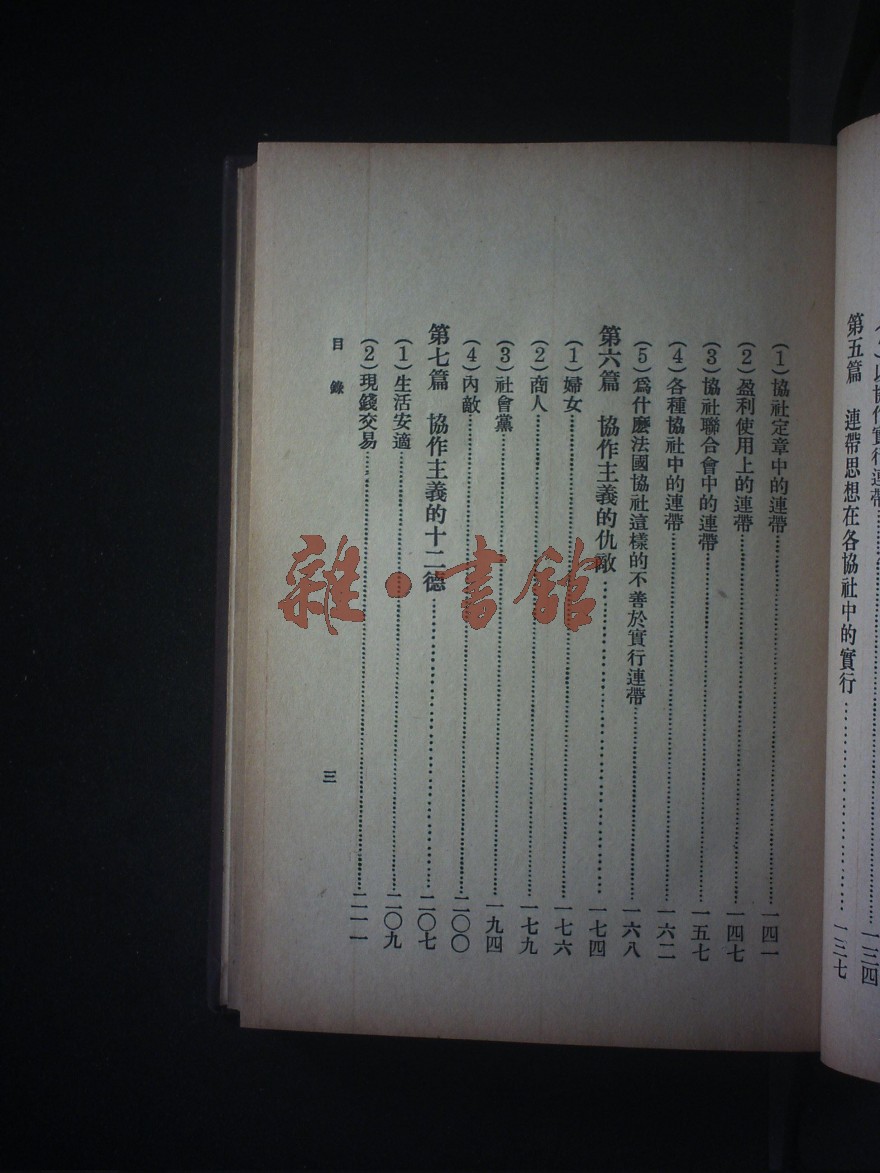 以協作實行連帶……一三四
第五篇　連帶思想在各協社中的實行……一三七
(1)協社定章中的連帶……一四一
(2)盈利使用上的連帶……一四七
(3)協社聯合會中的連帶……一五七
(4)各種協社中的連帶……一六二
(5)爲什麽法國協社這樣的不善於實行連帶……一六八
第六篇　協作主義的仇敵……一七四
(1)婦女……一七六
(2)商人……一七九
(3)社會黨……一九四
(4)內敵……二〇〇
第七篇　協作主義的十二德……二〇七
(1)生活安適……二〇九
(2)現錢交易……二一一
目錄
三
雜·書館